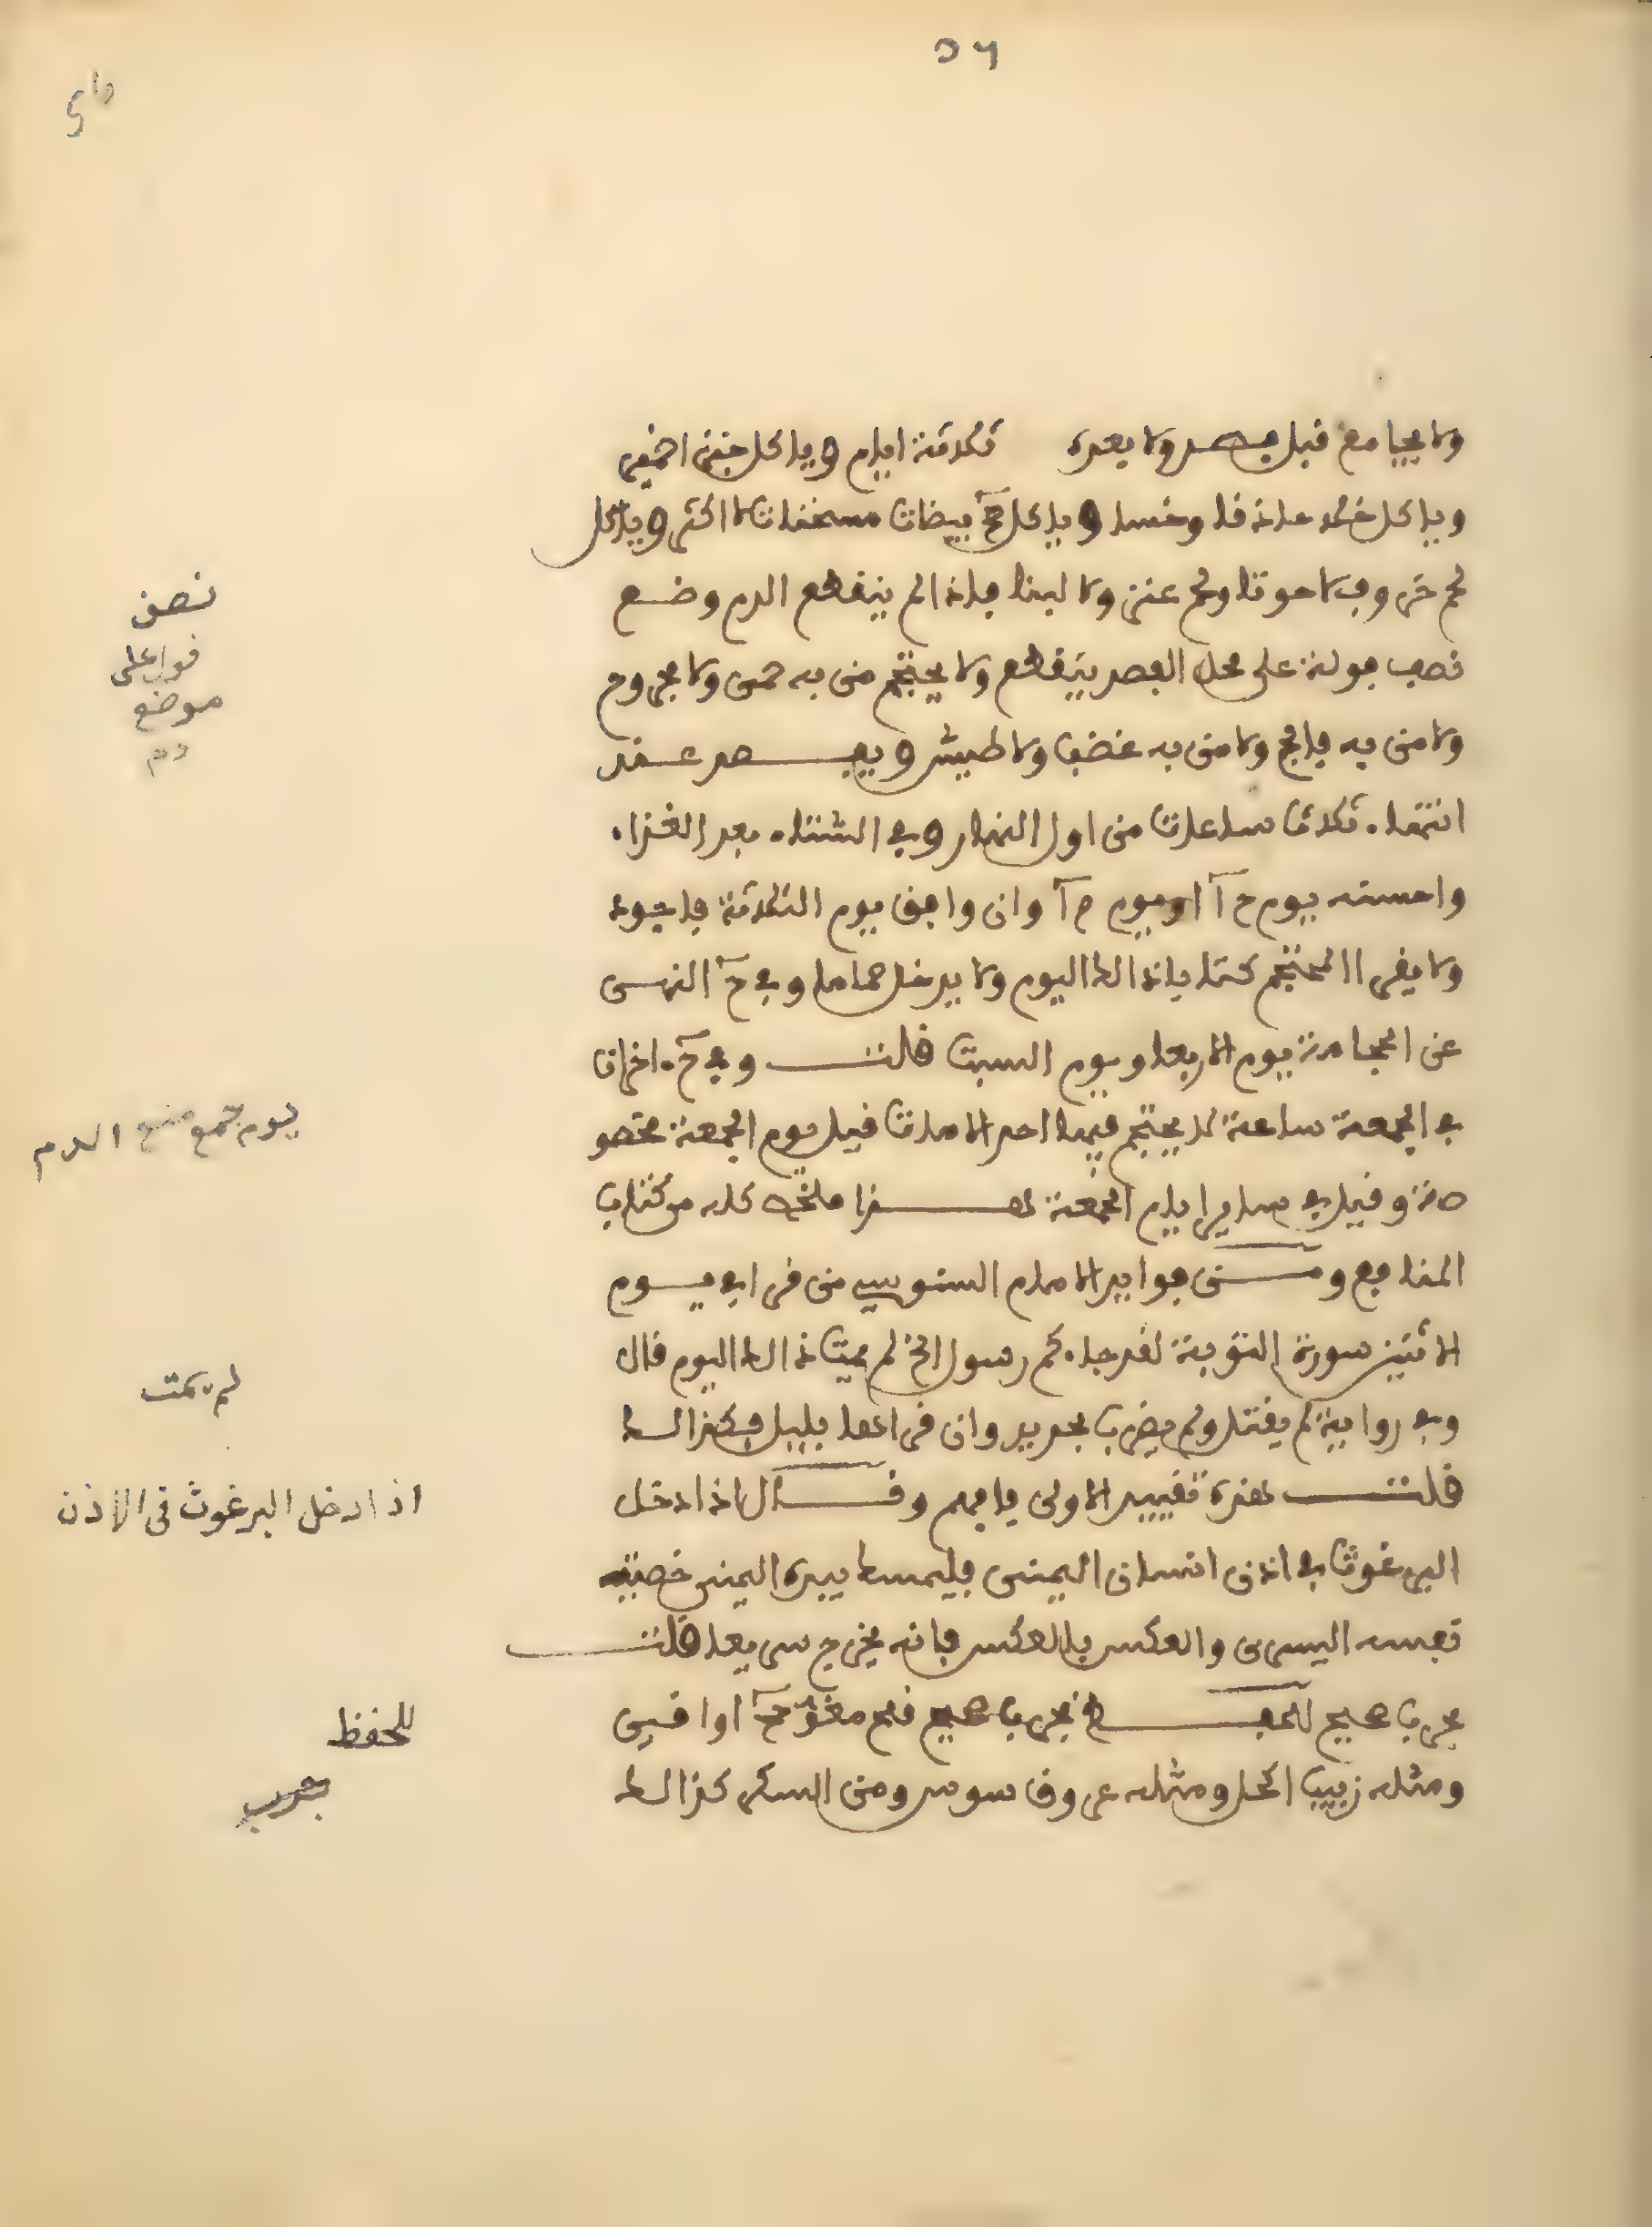 ٥٦
ولا يجامع قبل فصد ولا بعده ثلاثة ايام ويا كل خبزا خميرا
ويا كل خلا حاذقا وخسا ويا كل ح بيضات مسخنات لا اكثر ويا كل
لحم خروف لا حوتا ولحم عنز ولا لبنا فاذا لم ينقطع الدم وضع
نصف فولة على محل الفصد ينقطع ولا يحتجم من به حمى ولا مجروح
ولا من به فالج ولا من به غضب ولا طيش ويفصد عند
انتهاء ثلاث ساعات من اول النهار وفي الشتاء بعد الغذاء
واحسنه يوم او يوم وان وافق يوم الثلاثة فاجود
ولا يقرا المحتجم كتابا ذالك اليوم ولا يدخل حماما وفي ح النهي
عن الحجامة يوم الاربعا ويوم السبت قلت وفي ح اخرات
في الجمعة ساعة لا يحتجم فيها احد الا مات قيل يوم الجمعة مخصو
صة وقيل في ساير ايام الجمعة هذا ملخص كله من كتاب
المنافع ومن فوايد الامام السنوسي من قرا في يوم
الاثنين سورة التوبة لقد جاءكم رسول الخ لم يمت ذالك اليوم قال
وفي رواية لم يقتل ولم يضرب بحديد وان قراها بليل فكذالك
قلت هذه تقييد الاولى فافهم وقال اذا دخل
البرغوث في اذن انسان اليمنى فليمسك بيده اليمنى خصيته
نفسه اليسرى والعكس بالعكس فانه يخرج سريعا قلت
مجرب صحيح للحفظ مجرب صحيح اواقي
ومثله زبيب اكحل ومثله عروق سوس ومن السكر كذالك
نصف
فول على
موضع
دم
يوم جمع منع الدم
لم يمت
اذا دخل البرغوث في الاذن
للحفظ
مجرب